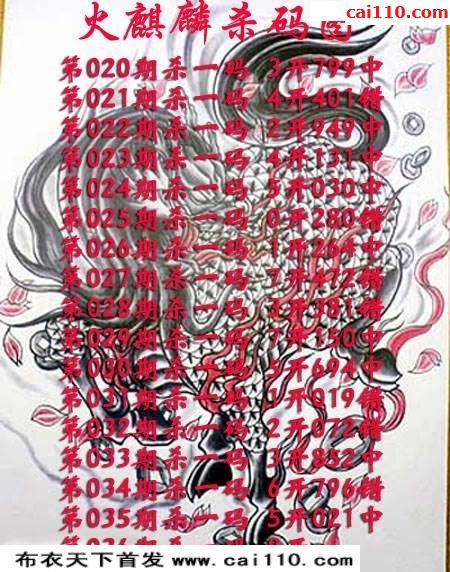 cai110.com
火麒麟杀码图
第020期杀一码 3开799中
第021期杀一码 4开401错
第022期杀一码 2开949中
第023期杀一码 4开131中
第024期杀一码 5开030中
第025期杀一码 0开280错
第026期杀一码 1开264中
第027期杀一码 7开472错
第028期杀一码 3开381错
第029期杀一码 7开150中
第030期杀一码 5开694中
第031期杀一码 1开019错
第032期杀一码 2开072错
第033期杀一码 3开852中
第034期杀一码 6开796错
第035期杀一码 5开021中
布衣天下首发 www.cai110.com